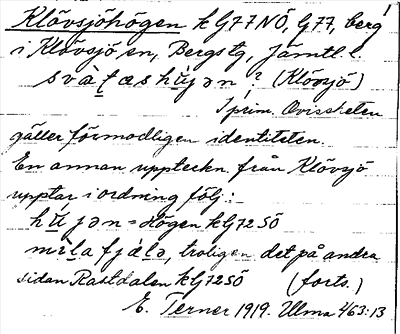 1
Klövsjöhögen k G77NÖ, G77, berg
i Klövsjö sn, Bergs tg, Jämtl. l.
? (Klövsjö)
I prim. Ovissheten
gäller förmodligen identiteten.
En annan uppteckn. från Klövsjö
upptar i ordning följ.:
= Högen k G72SÖ
troligen det på andra
sidan Rastdalen k G72SÖ (forts.)
E. Terner 1919. Ulma 463:13